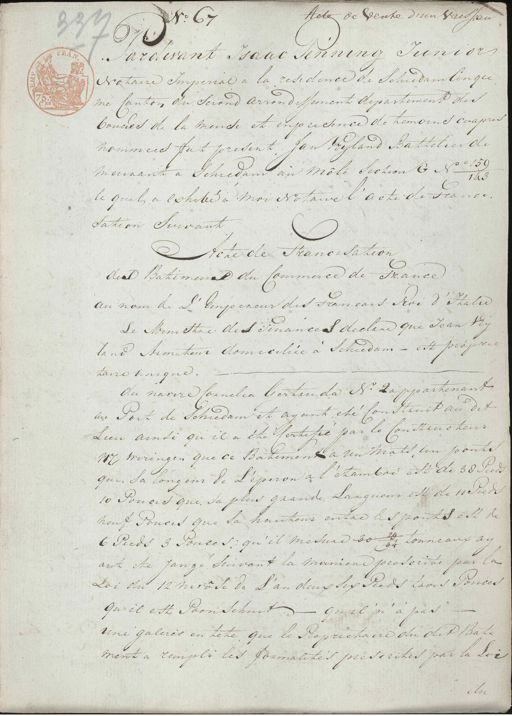 337
No. 67
Acte de Vente d'un Vaisseau
Pardevant Isaac Pinning Junior
Notaire Imperial a la residence de Schiedam Cinquie
me Canton du Second arrondissement departement des
bouches de la meuse et en presence de temoins ciapres
nommées fut present Jan Vryland Battelier de
meurant a Schiedam au môle Section G Nos 159
163
le quel, a exhibé a moi Notaire l'acte de Franci
sation Suivant
Acte de Francisation
des Batiments du Commerce de France
au nom de L'Empereur des Francais Roi d'Italie
Le Ministre des Finances declare que Jean Vry
land Armateur domiciliée à Schiedam est proprie
taire unique.
du navire Cornelia Gertruda No. 2 appartenant
au Port de Schiedam et ayant eté Construit au dit
Lieu ainsi qu'il a été Certifié par le Constructeur
que ce Batiment a un mats, un ponts
que, sa longeur de L'éperon a l'étambot est de 38 Pieds
10 Pouces que sa plus grande Largueur est de 10 Pieds
neuf Pouces que sa hauteur entre les ponts est de
6 Pieds 3 Pouces; qu'il mesure tonneaux ay
ant été jaugé Suivant la maniere prescrite par la
Loi du 12 nivose de L'an deux
qu'il est qu'il n'a pas
une galerie en tete, que le Proprietaire du dit Bati
ment a rempli les formalités prescrites par la Loi
du